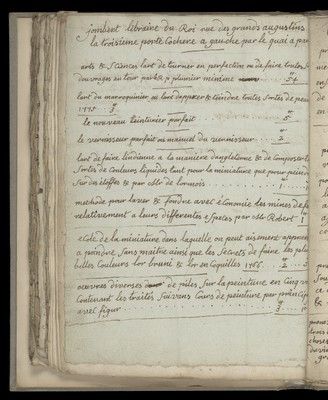 jombert libraire du Roi rue des grands augustins
la troisieme porte Cochere a gauche par le quai a par
arts & Sciences l'art de tourner en perfection ou de faire toutes S
d'ouvrages au tour par le p. plumier
l'art du marroquinier ou l'art d'apprer & teindre toutes Sortes de peau
1775
le nouveau teinturier parfait 5
le vernisseur parfait ou manuel du vernisseur 2
l'art de faire l'indienne a la maniere d'angleterre & de Composer l
Sortes de Couleurs liquides tant pour la miniature que pour peindre
Sur des étoffes & par Mr de lormois 1
methode pour laver & fondre avec économie les mines de f
relativement a leurs differentes especes par Mr Robert 1
ecole de la miniature dans laquelle on peut aisement apprendre
a peindre Sans maitre ainsi que les Secrets de faire les plus
belles Couleurs l'or bruni & l'or en Coquilles 1766 2
oeuvres diverses de piles Sur la peinture en Cinq v
Contenant les traités Suivans Cours de peinture par principes
avec figur 3